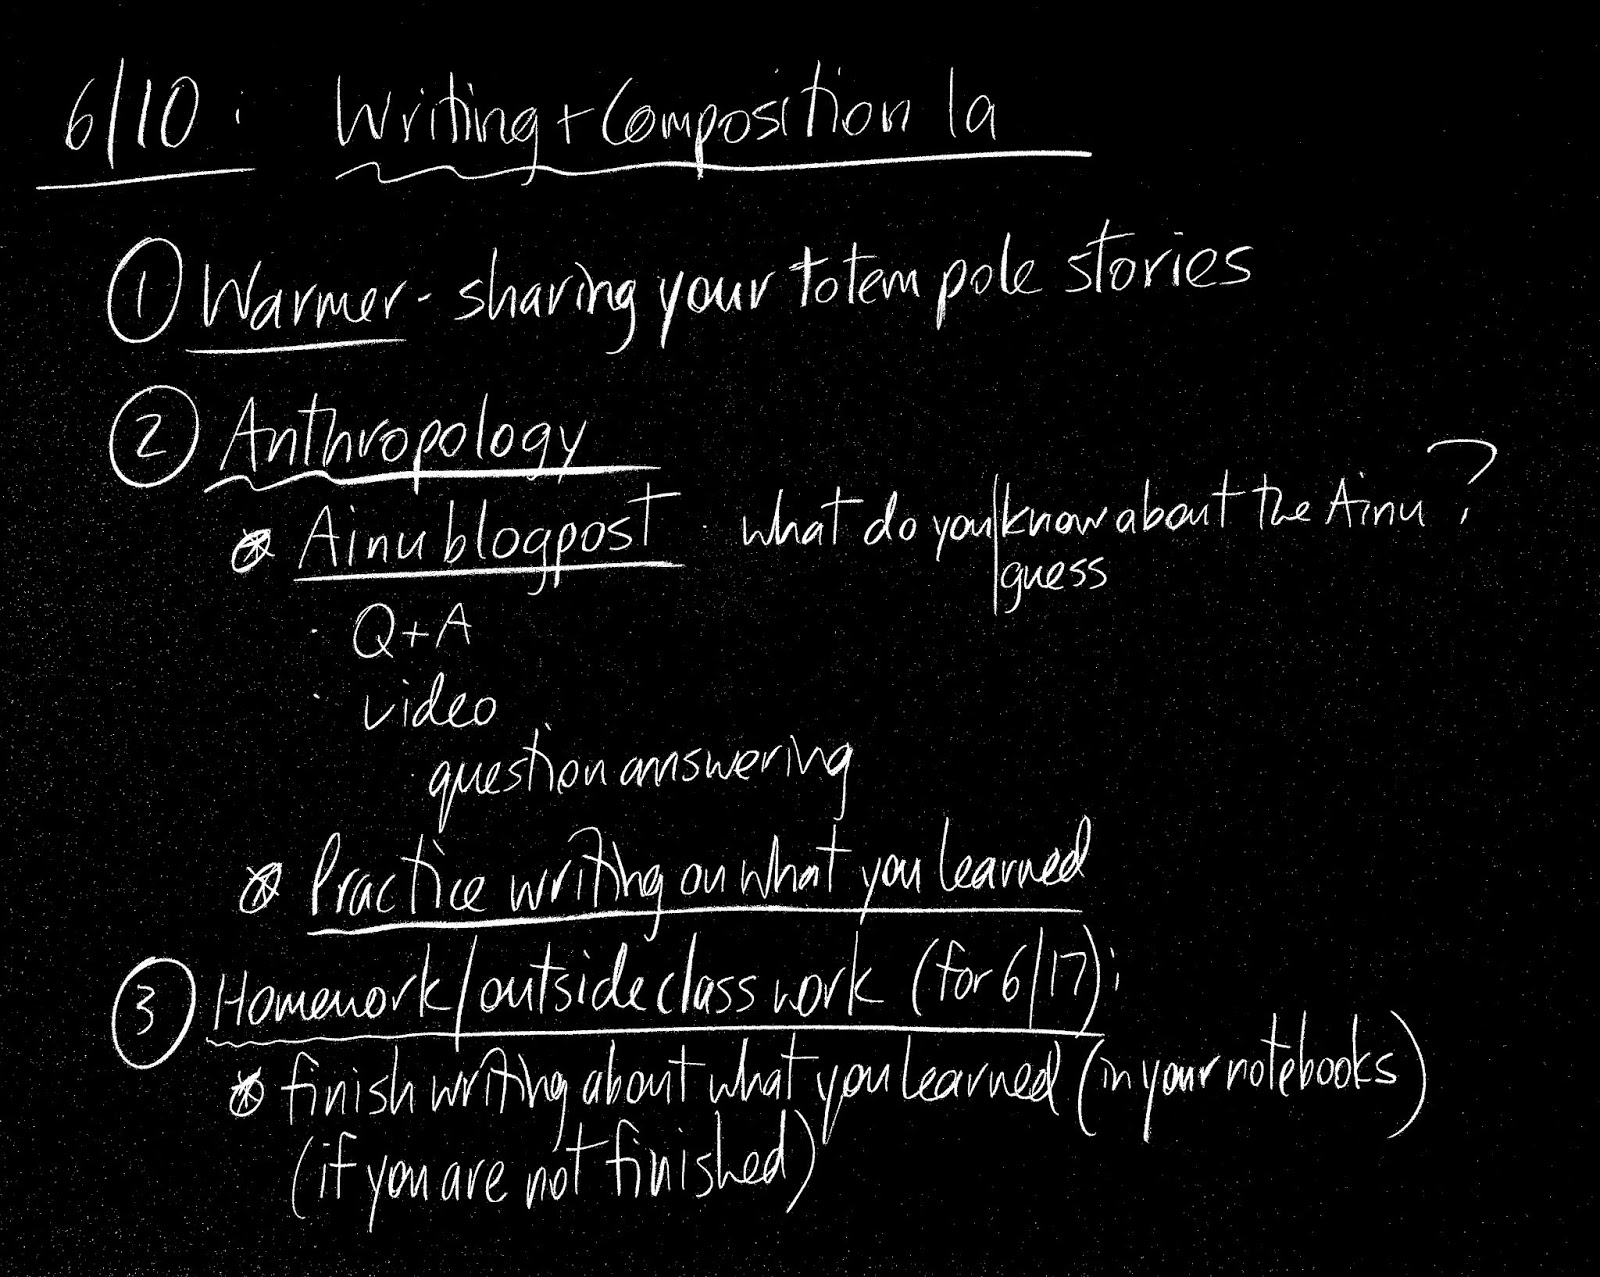 6/10: Writing + Composition 1a
① Warmer - sharing your totem pole stories
② Anthropology
Ainu blogpost · what do you | know about the Ainu?
guess
· Q+A
· video
· question answering
Practice writing on what you learned
③ Homework/outside class work (for 6/17):
finish writing about what you learned (in your notebooks)
(if you are not finished)